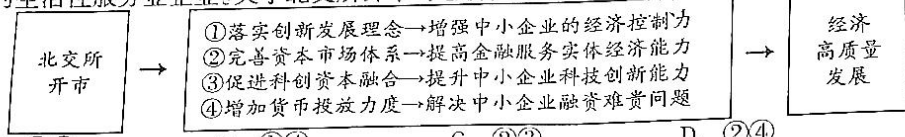 的生活性服务业企业。关于北交所
北交所
开市
→
①落实创新发展理念→增强中小企业的经济控制力
②完善资本市场体系→提高金融服务实体经济能力
③促进科创资本融合→提升中小企业科技创新能力
④增加货币投放力度→解决中小企业融资难贵问题
→
经济
高质量
发展
C. ②③
D. ②④